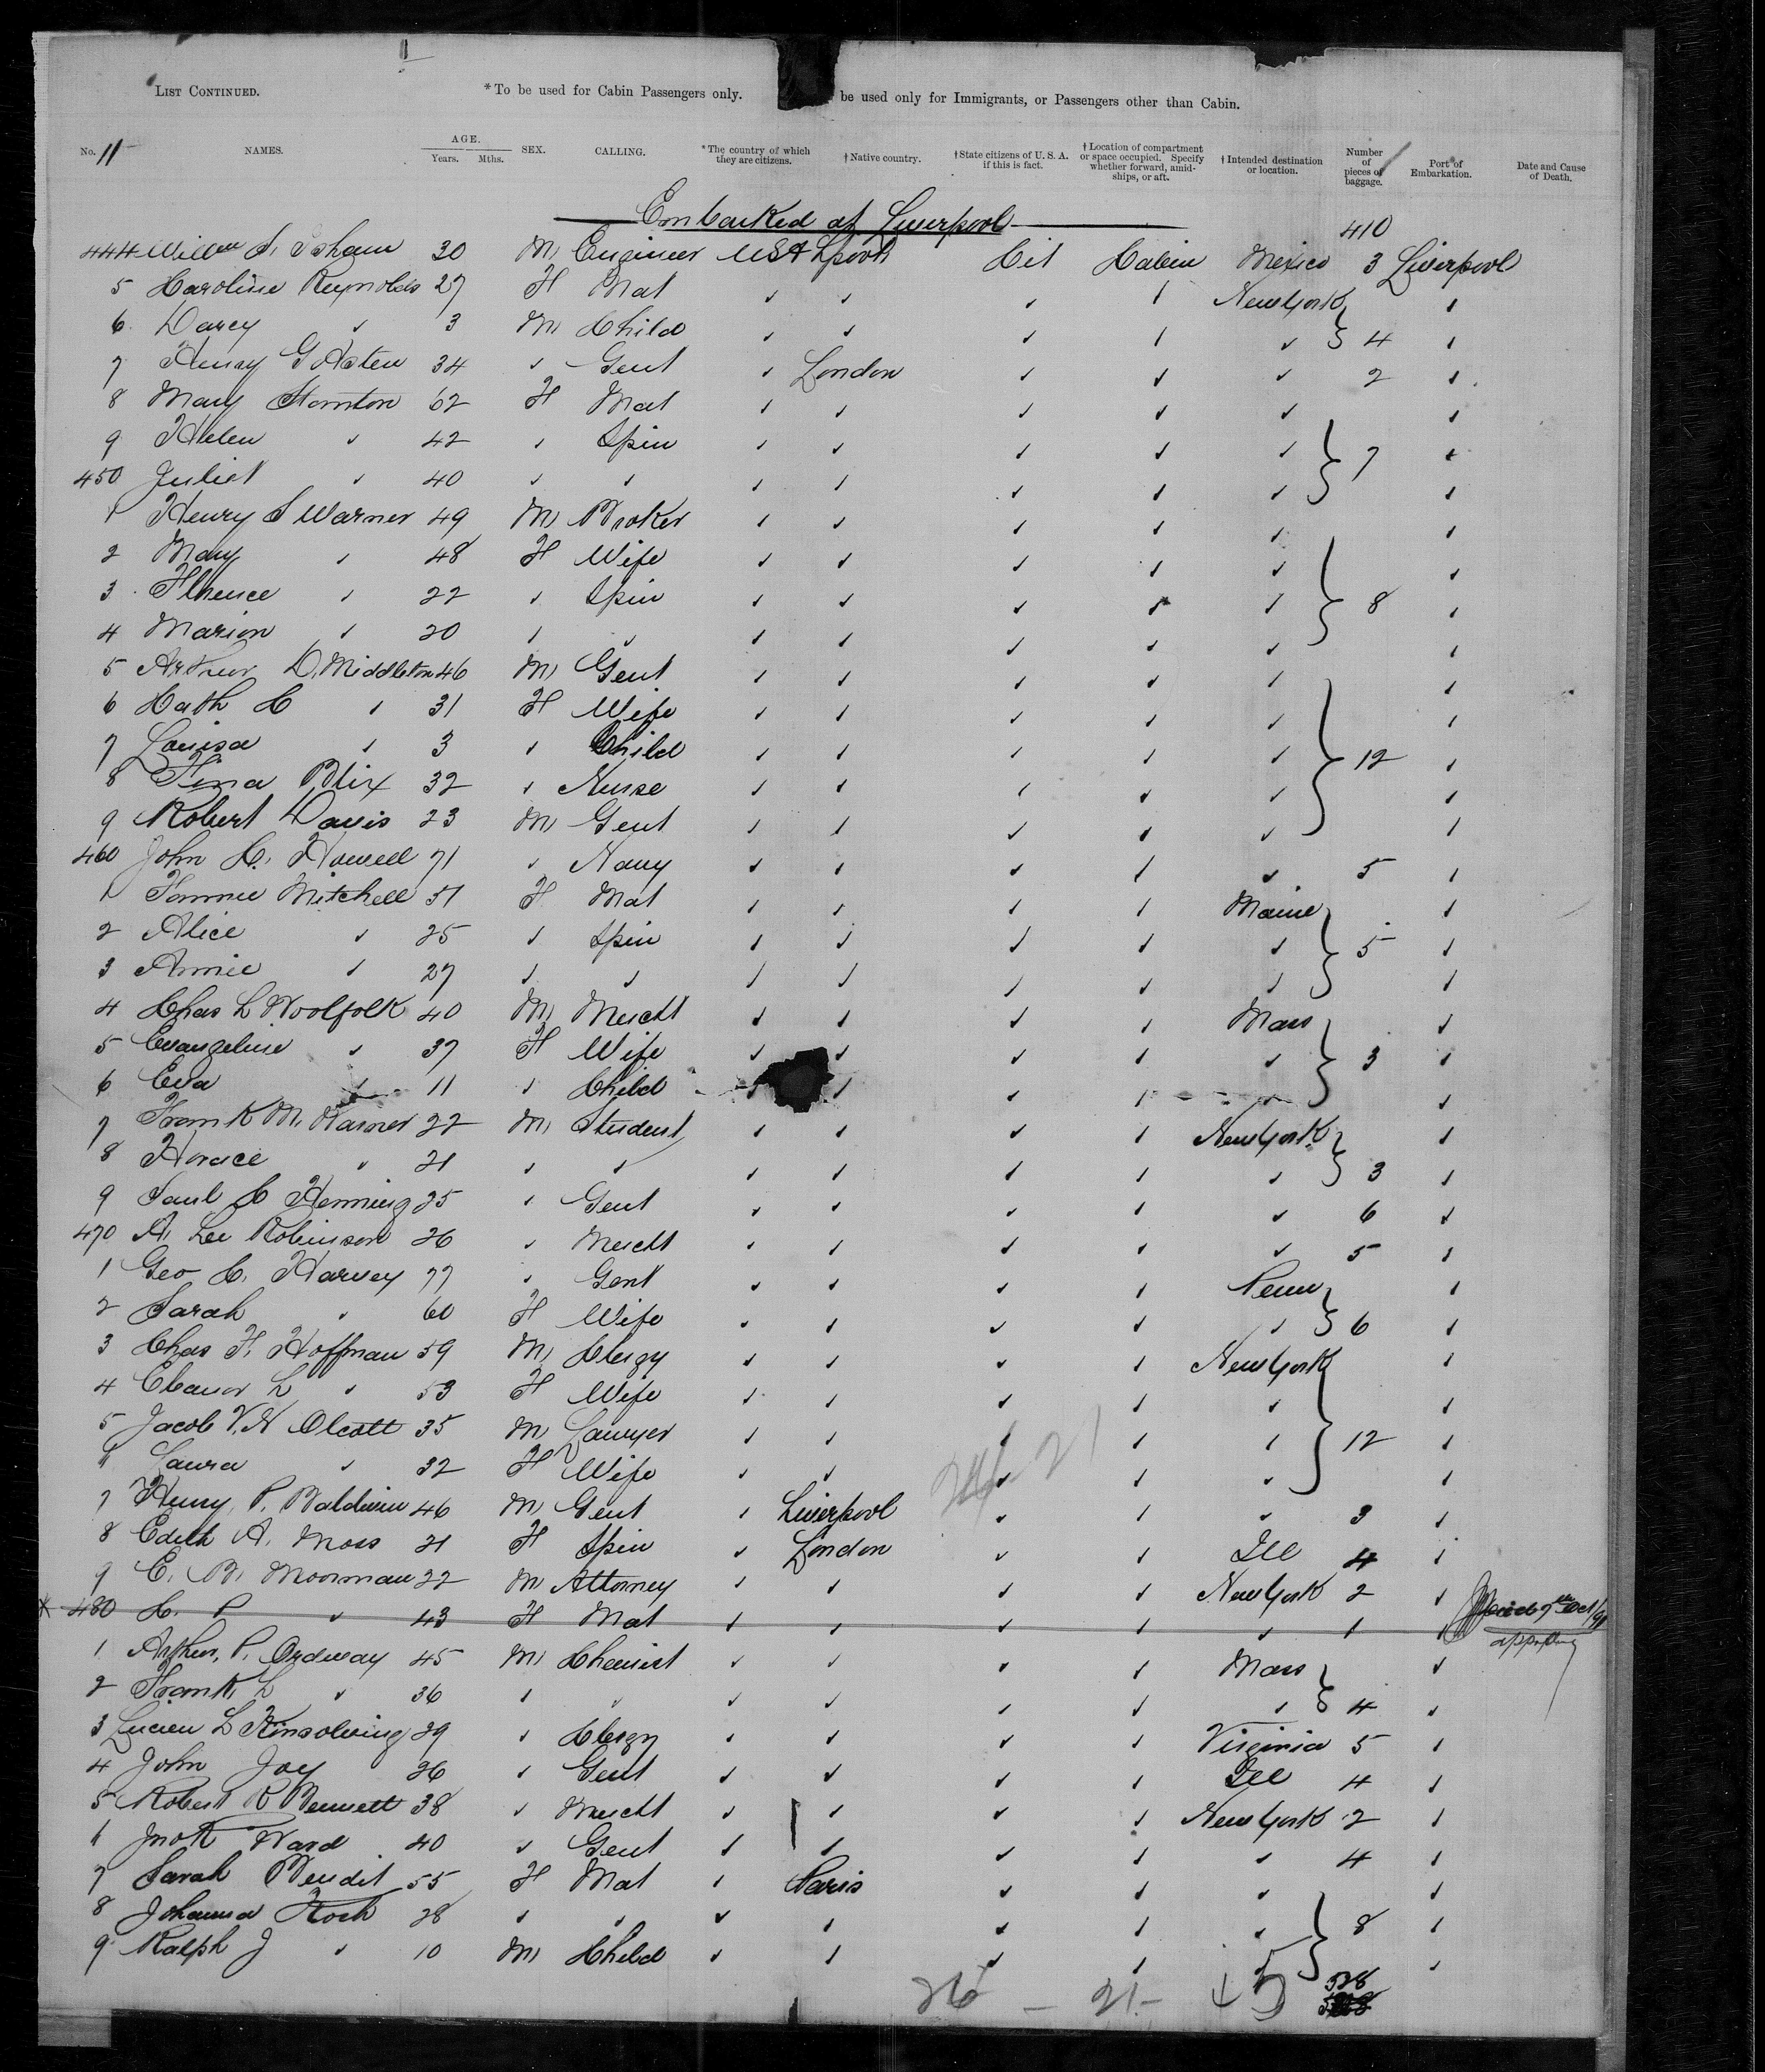 LIST CONTINUED. *To be used for Cabin Passengers only. be used only for Immigrants, or Passengers other than Cabin.
No. 11 NAMES. AGE. Years. Mths. SEX. CALLING. *The country of which they are citizens. †Native country. †State citizens of U. S. A. if this is fact. †Location of compartment or space occupied. Specify whether forward, amidships, or aft. †Intended destination or location. Number of pieces of baggage. Port of Embarkation. Date and Cause of Death.
Embarked at Liverpool
410
444 Willm S. Isham 30 M Engineer USA Lpool Cit Cabin Mexico 3 Liverpool
5 Caroline Reynolds 27 F Mat ✓ ✓ ✓ ✓ New York ✓
6 Darcy ✓ 3 M Child ✓ ✓ ✓ ✓ ✓ 4 ✓
7 Henry G 34 ✓ Gent ✓ London ✓ ✓ ✓ 2 ✓
8 Mary 62 F Mat ✓ ✓ ✓ ✓ ✓ ✓
9 Helen ✓ 42 ✓ Spin ✓ ✓ ✓ ✓ ✓ 7 ✓
450 Juliet ✓ 40 ✓ ✓ ✓ ✓ ✓ ✓ ✓ ✓
1 Henry S Warner 49 M Broker ✓ ✓ ✓ ✓ ✓ ✓
2 Mary ✓ 48 F Wife ✓ ✓ ✓ ✓ ✓ ✓
3 Florence ✓ 22 ✓ Spin ✓ ✓ ✓ ✓ ✓ 8 ✓
4 Marion ✓ 20 ✓ ✓ ✓ ✓ ✓ ✓ ✓ ✓
5 Arthur D. Middleton 46 M Gent ✓ ✓ ✓ ✓ ✓ ✓
6 Cath C ✓ 31 F Wife ✓ ✓ ✓ ✓ ✓ ✓
7 Louisa ✓ 3 ✓ Child ✓ ✓ ✓ ✓ ✓ 12 ✓
8 Tina Blix 32 ✓ Nurse ✓ ✓ ✓ ✓ ✓ ✓
9 Robert Davis 23 M Gent ✓ ✓ ✓ ✓ ✓ ✓
460 John C. Howell 71 ✓ Navy ✓ ✓ ✓ ✓ ✓ 5 ✓
1 Fannie Mitchell 51 F Mat ✓ ✓ ✓ ✓ Maine ✓
2 Alice ✓ 25 ✓ Spin ✓ ✓ ✓ ✓ ✓ 5 ✓
3 Annie ✓ 27 ✓ ✓ ✓ ✓ ✓ ✓ ✓ ✓
4 Chas L Woolfolk 40 M Mercht ✓ ✓ ✓ ✓ Mass ✓
5 Evangeline ✓ 37 F Wife ✓ ✓ ✓ ✓ ✓ 3 ✓
6 Eva ✓ 11 ✓ Child ✓ ✓ ✓ ✓ ✓ ✓
7 Frank M. Warner 22 M Student ✓ ✓ ✓ ✓ New York ✓
8 Horace ✓ 21 ✓ ✓ ✓ ✓ ✓ ✓ ✓ 3 ✓
9 Saml C Henning 25 ✓ Gent ✓ ✓ ✓ ✓ ✓ 6 ✓
470 A. Lee Robinson 26 ✓ Mercht ✓ ✓ ✓ ✓ ✓ 5 ✓
1 Geo C. Harvey 77 ✓ Gent ✓ ✓ ✓ ✓ Penn ✓
2 Sarah ✓ 60 F Wife ✓ ✓ ✓ ✓ ✓ 6 ✓
3 Chas F. Hoffman 59 M Clergy ✓ ✓ ✓ ✓ New York ✓
4 Eleanor L ✓ 53 F Wife ✓ ✓ ✓ ✓ ✓ ✓
5 Jacob V. N Olcott 35 M Lawyer ✓ ✓ ✓ ✓ ✓ 12 ✓
6 Laura ✓ 32 F Wife ✓ ✓ ✓ ✓ ✓ ✓
7 Henry P. Baldwin 46 M Gent ✓ Liverpool ✓ ✓ ✓ 3 ✓
8 Edith A. Moss 21 F Spin ✓ London ✓ ✓ Ill 4 ✓
9 E. B. Moorman 22 M Attorney ✓ ✓ ✓ ✓ New York 2 ✓
480 C. P ✓ 43 F Mat ✓ ✓ ✓ ✓ ✓ 1 ✓ 7th Oct/91
1 Arthur. P. Ordway 45 M Chemist ✓ ✓ ✓ ✓ Mass ✓
2 Frank L ✓ 36 ✓ ✓ ✓ ✓ ✓ ✓ ✓ 4 ✓
3 Lucien L Kinsolving 29 ✓ Clergy ✓ ✓ ✓ ✓ Virginia 5 ✓
4 John Joy 26 ✓ Gent ✓ ✓ ✓ ✓ Ill 4 ✓
5 Robert R Bennett 38 ✓ Mercht ✓ ✓ ✓ ✓ New York 2 ✓
6 Ward 40 ✓ Gent ✓ ✓ ✓ ✓ ✓ 4 ✓
7 Sarah Bendit 55 F Mat ✓ Paris ✓ ✓ ✓ ✓
8 Johanna Koch 28 ✓ ✓ ✓ ✓ ✓ ✓ ✓ 8 ✓
9 Ralph J ✓ 10 M Child ✓ ✓ ✓ ✓ ✓ ✓
26 - 21 - 528